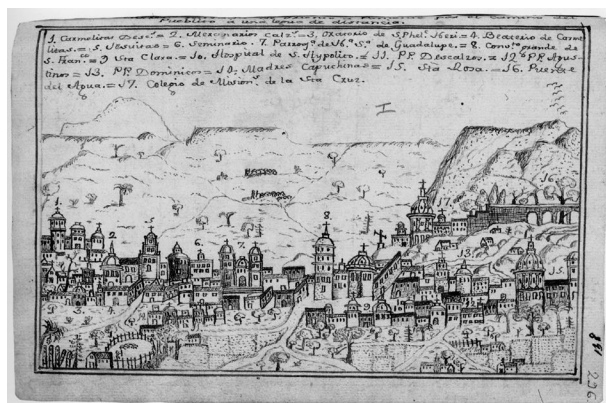 Pueblito a una legua de distancia.
1. Carmelitas Desc.s = 2. Mercenarios calz.s = 3. Oratorio de S. Phel. Neri = 4. Beaterio de Carme
litas. = 5. Jesuitas = 6. Seminario. 7. Parroq.a de N.a S.a de Guadalupe. = 8. Conv.o grande de
S. Fran.co = 9 Sta Clara. = 10. Hospital de S. Hypolito. = 11. PP. Descalzos. = 12. PP. Agus
tinos = 13. PP. Dominicos = 14. Madres Capuchinas = 15. Sta Rosa. = 16. Puente
del Agua. = 17. Colegio de Mision.s de la Sta Cruz.
I
1
2
5
6.
7.
8
17.
16
13.
15.
9
3.
4.
9
296